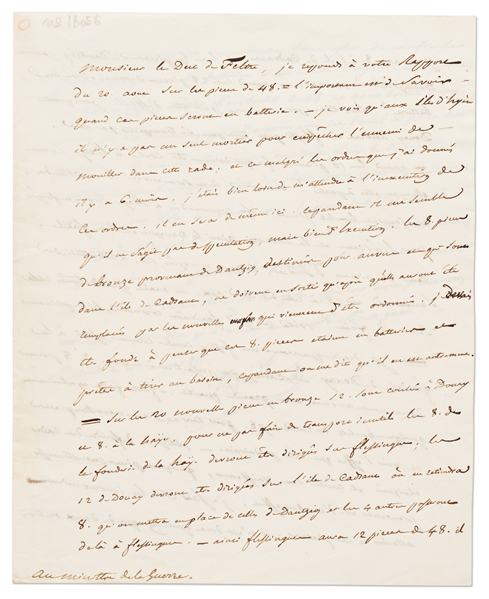 Monsieur le Duc de Feltre, je reponds à votre Rapport
du 20 aout sur les pieces de 48. = l'important est de Savoir
quand ces pieces seront en batterie. - je vois qu'aux iles d'hyeres
il n'y a pas un seul mortier pour empêcher l'ennemi de
mouiller dans cette rade, et ce malgré les ordres que j'ai donnés
il y a 6 mois, j'étais bien loin de m'attendre à l'inexecution de
ces ordres. il en sera de même ici. cependant il me semble
qu'il ne s'agit pas de disputation, mais bien d'execution. les 8 pieces
de bronze provenant de Dantzig, destinées pour anvers et qui sont
dans l'ile de Cadzand, ne doivent en sortir qu'après qu'elles auront été
remplacées par les nouvelles qui viennent d'être ordonnées. je devais
être fondé à penser que ces 8. pieces étaient en batteries et
prêtes à tirer au besoin, cependant on me dit qu'il en est autrement.
= Sur les 20 nouvelles pieces en bronze 12. sont coulées à Douay
et 8. à la haye. pour ne pas faire de transport inutile les 8. de
la fonderie de la haye devront être dirigées sur flessingue; les
12 de Douay devront être dirigées sur l'ile de Cadzand où on retiendra
8. qu'on mettra en place de celles de Dantzig et les 4 autres passeront
de là à flessingue. - ainsi flessingue aura 12 pieces de 48. il
au ministre de la Guerre.